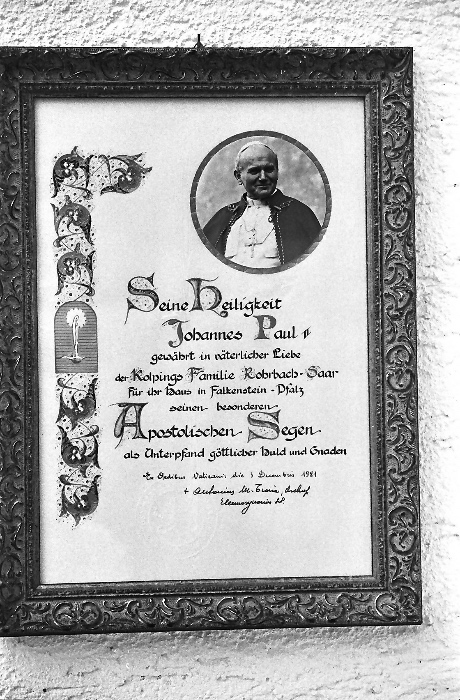 Seine Heiligkeit
Johannes Paul II
gewährt in väterlicher Liebe
der Kolpings Familie Rohrbach-Saar
für ihr Haus in Falkenstein - Pfalz
seinen besonderen
Apostolischen Segen
als Unterpfand göttlicher Huld und Gnaden
Ex Aedibus Vaticanis die 3 Decembris 1981
+ Antonius M. Travia, Archiep.
Eleemosynarius SS.